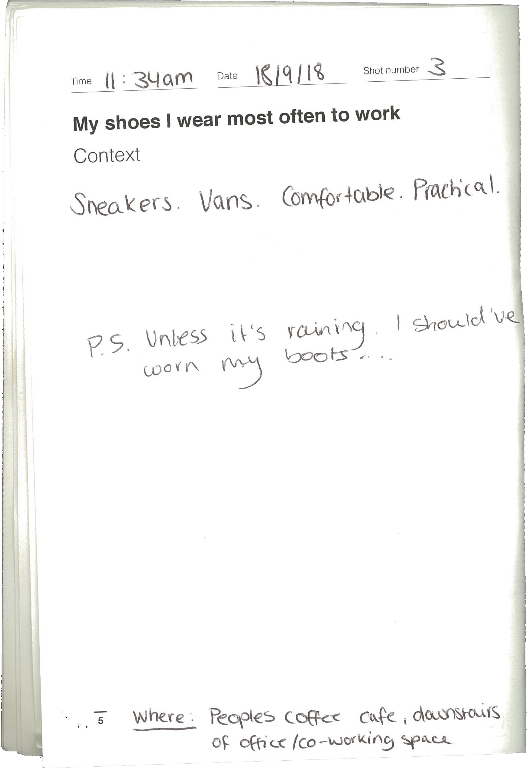 Time 11:34am Date 18/9/18 Shot number 3
My shoes I wear most often to work
Context
Sneakers. Vans. Comfortable. Practical.
P.S. Unless it's raining. I should've
worn my boots....
5 Where: Peoples coffee cafe, downstairs
of office/co-working space